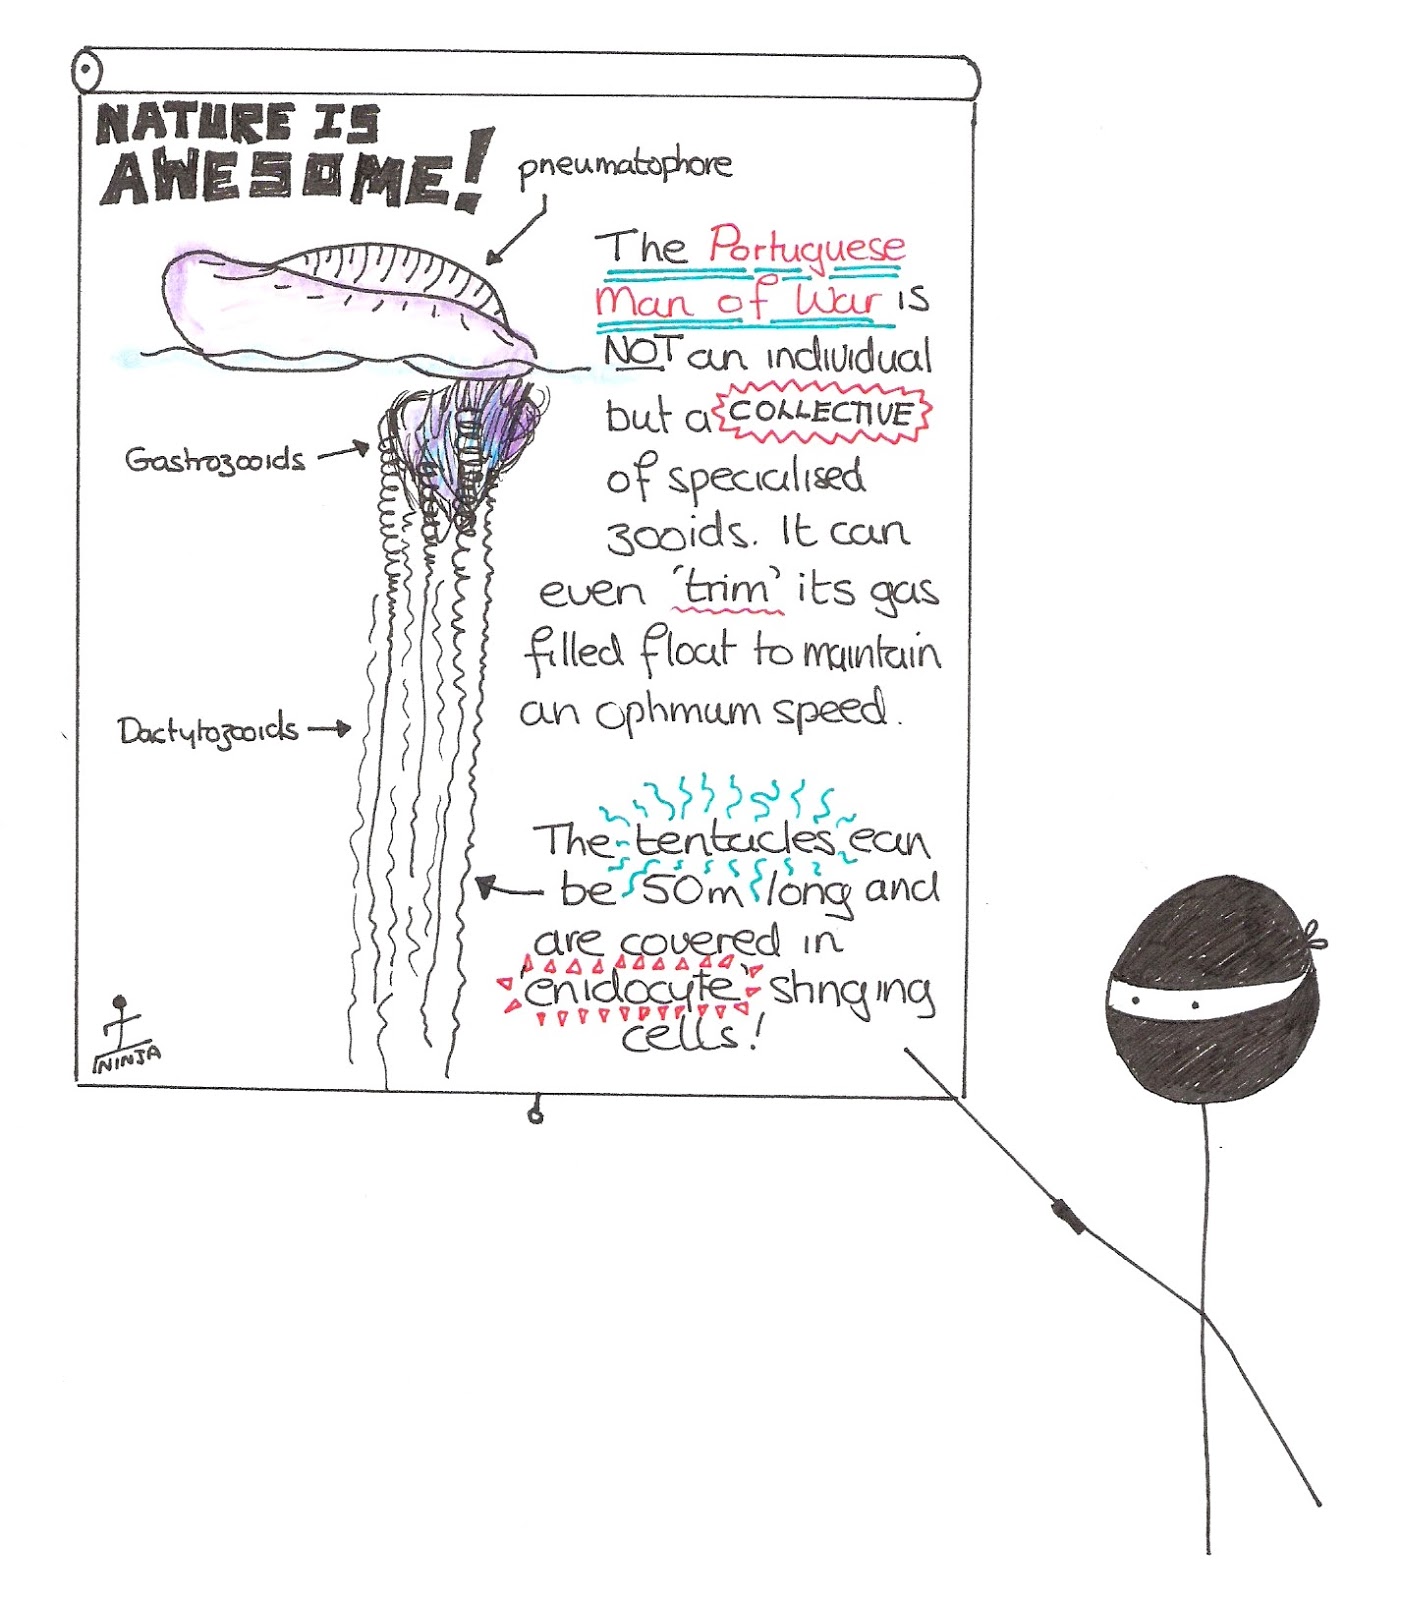 NATURE IS
AWESOME!
pneumatophore
The Portuguese
Man of War is
NOT an individual
but a COLLECTIVE
of specialised
zooids. It can
even 'trim' its gas
filled float to maintain
an optimum speed.
Gastrozooids
Dactylozooids
The tentacles can
be 50m long and
are covered in
'cnidocyte' stinging
cells!
NINJA